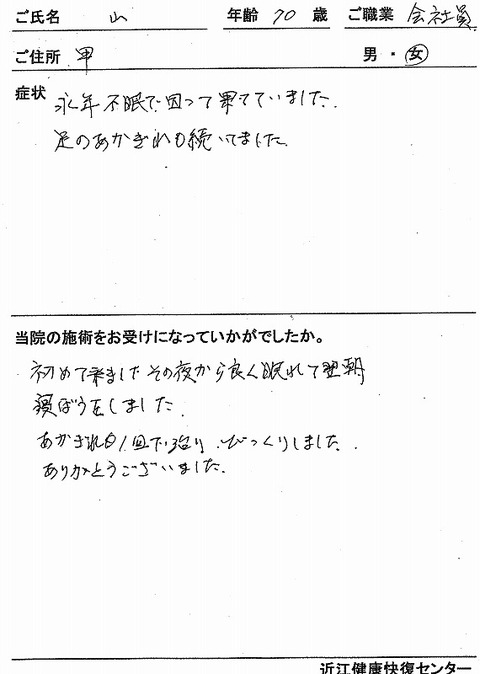 ご氏名 山 年齢 70 歳 ご職業 会社員
ご住所 甲 男・女
症状 永年不眠で困って果てていました.
足のあかぎれも続いてました.
当院の施術をお受けになっていかがでしたか。
初めて来ました その夜から良く眠れて翌朝
寝ぼうをしました.
あかぎれも1回で治り、びっくりしました.
ありがとうございました.
近江健康快復センター